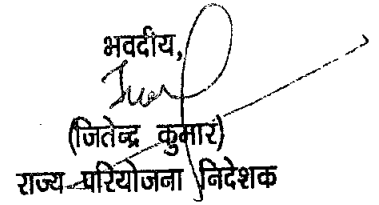 भवदीय,
(जितेन्द्र कुमार)
राज्य परियोजना निदेशक